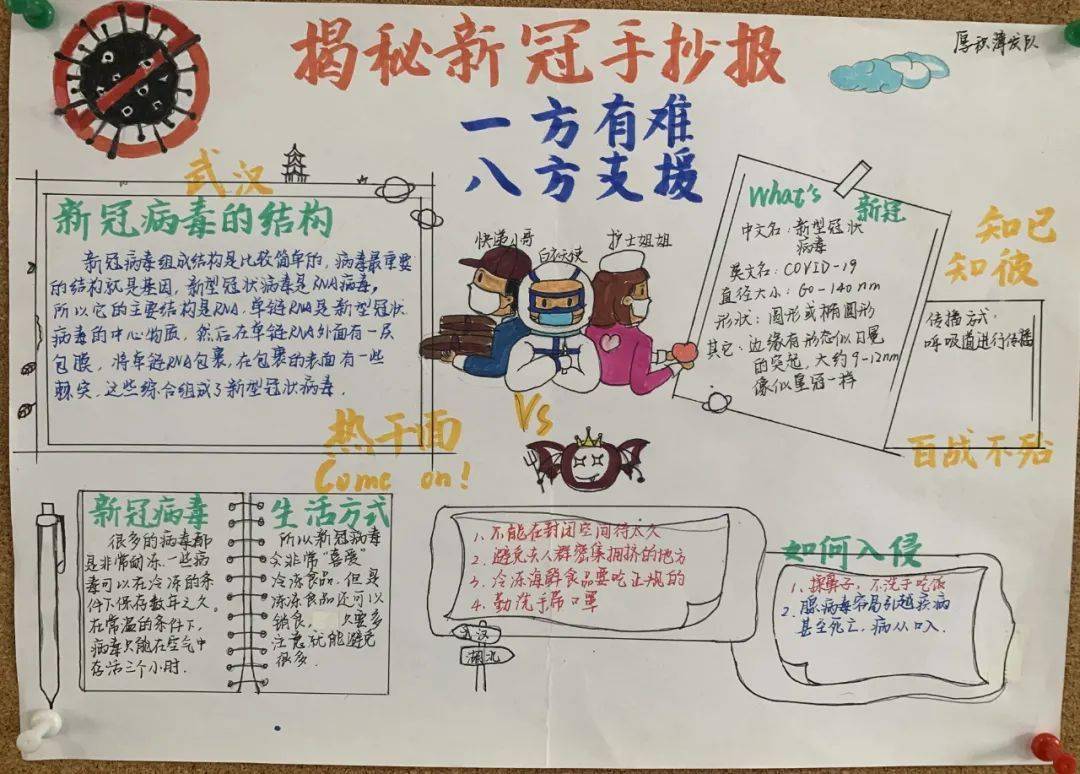 揭秘新冠手抄报
厚积薄发队
一方有难
八方支援
武汉
新冠病毒的结构
新冠病毒组成结构是比较简单的，病毒最重要
的结构就是基因，新型冠状病毒是RNA病毒，
所以它的主要结构是RNA，单链RNA是新型冠状
病毒的中心物质，然后在单链RNA外面有一层
包膜，将单链RNA包裹，在包裹的表面有一些
棘突，这些综合组成了新型冠状病毒．
热干面
Come on!
快递小哥
白衣天使
护士姐姐
Vs
What's 新冠
中文名：新型冠状
病毒
英文名：COVID-19
直径大小：60-140nm
形状：圆形或椭圆形
其它：边缘有形态似日冕
的突起，大约9-12nm
像似皇冠一样
知己
知彼
传播方式：
呼吸道进行传播
百战不殆
新冠病毒
很多的病毒都
是非常耐冻，一些病
毒可以在冷冻的条
件下保存数年之久．
在常温的条件下，
病毒只能在空气中
存活三个小时．
生活方式
所以新冠病毒
会非常“喜爱”
冷冻食品．但是
冻冻食品还可以
锁食， 只要多
注意就能避免
很多．
1．不能在封闭空间待太久
2．避免去人群密集拥挤的地方
3．冷冻海鲜食品要吃正规的
4．勤洗手带口罩
武汉
湖北
如何入侵
1．揉鼻子，不洗手吃饭
2．病毒容易引起疾病
甚至死亡，病从口入．